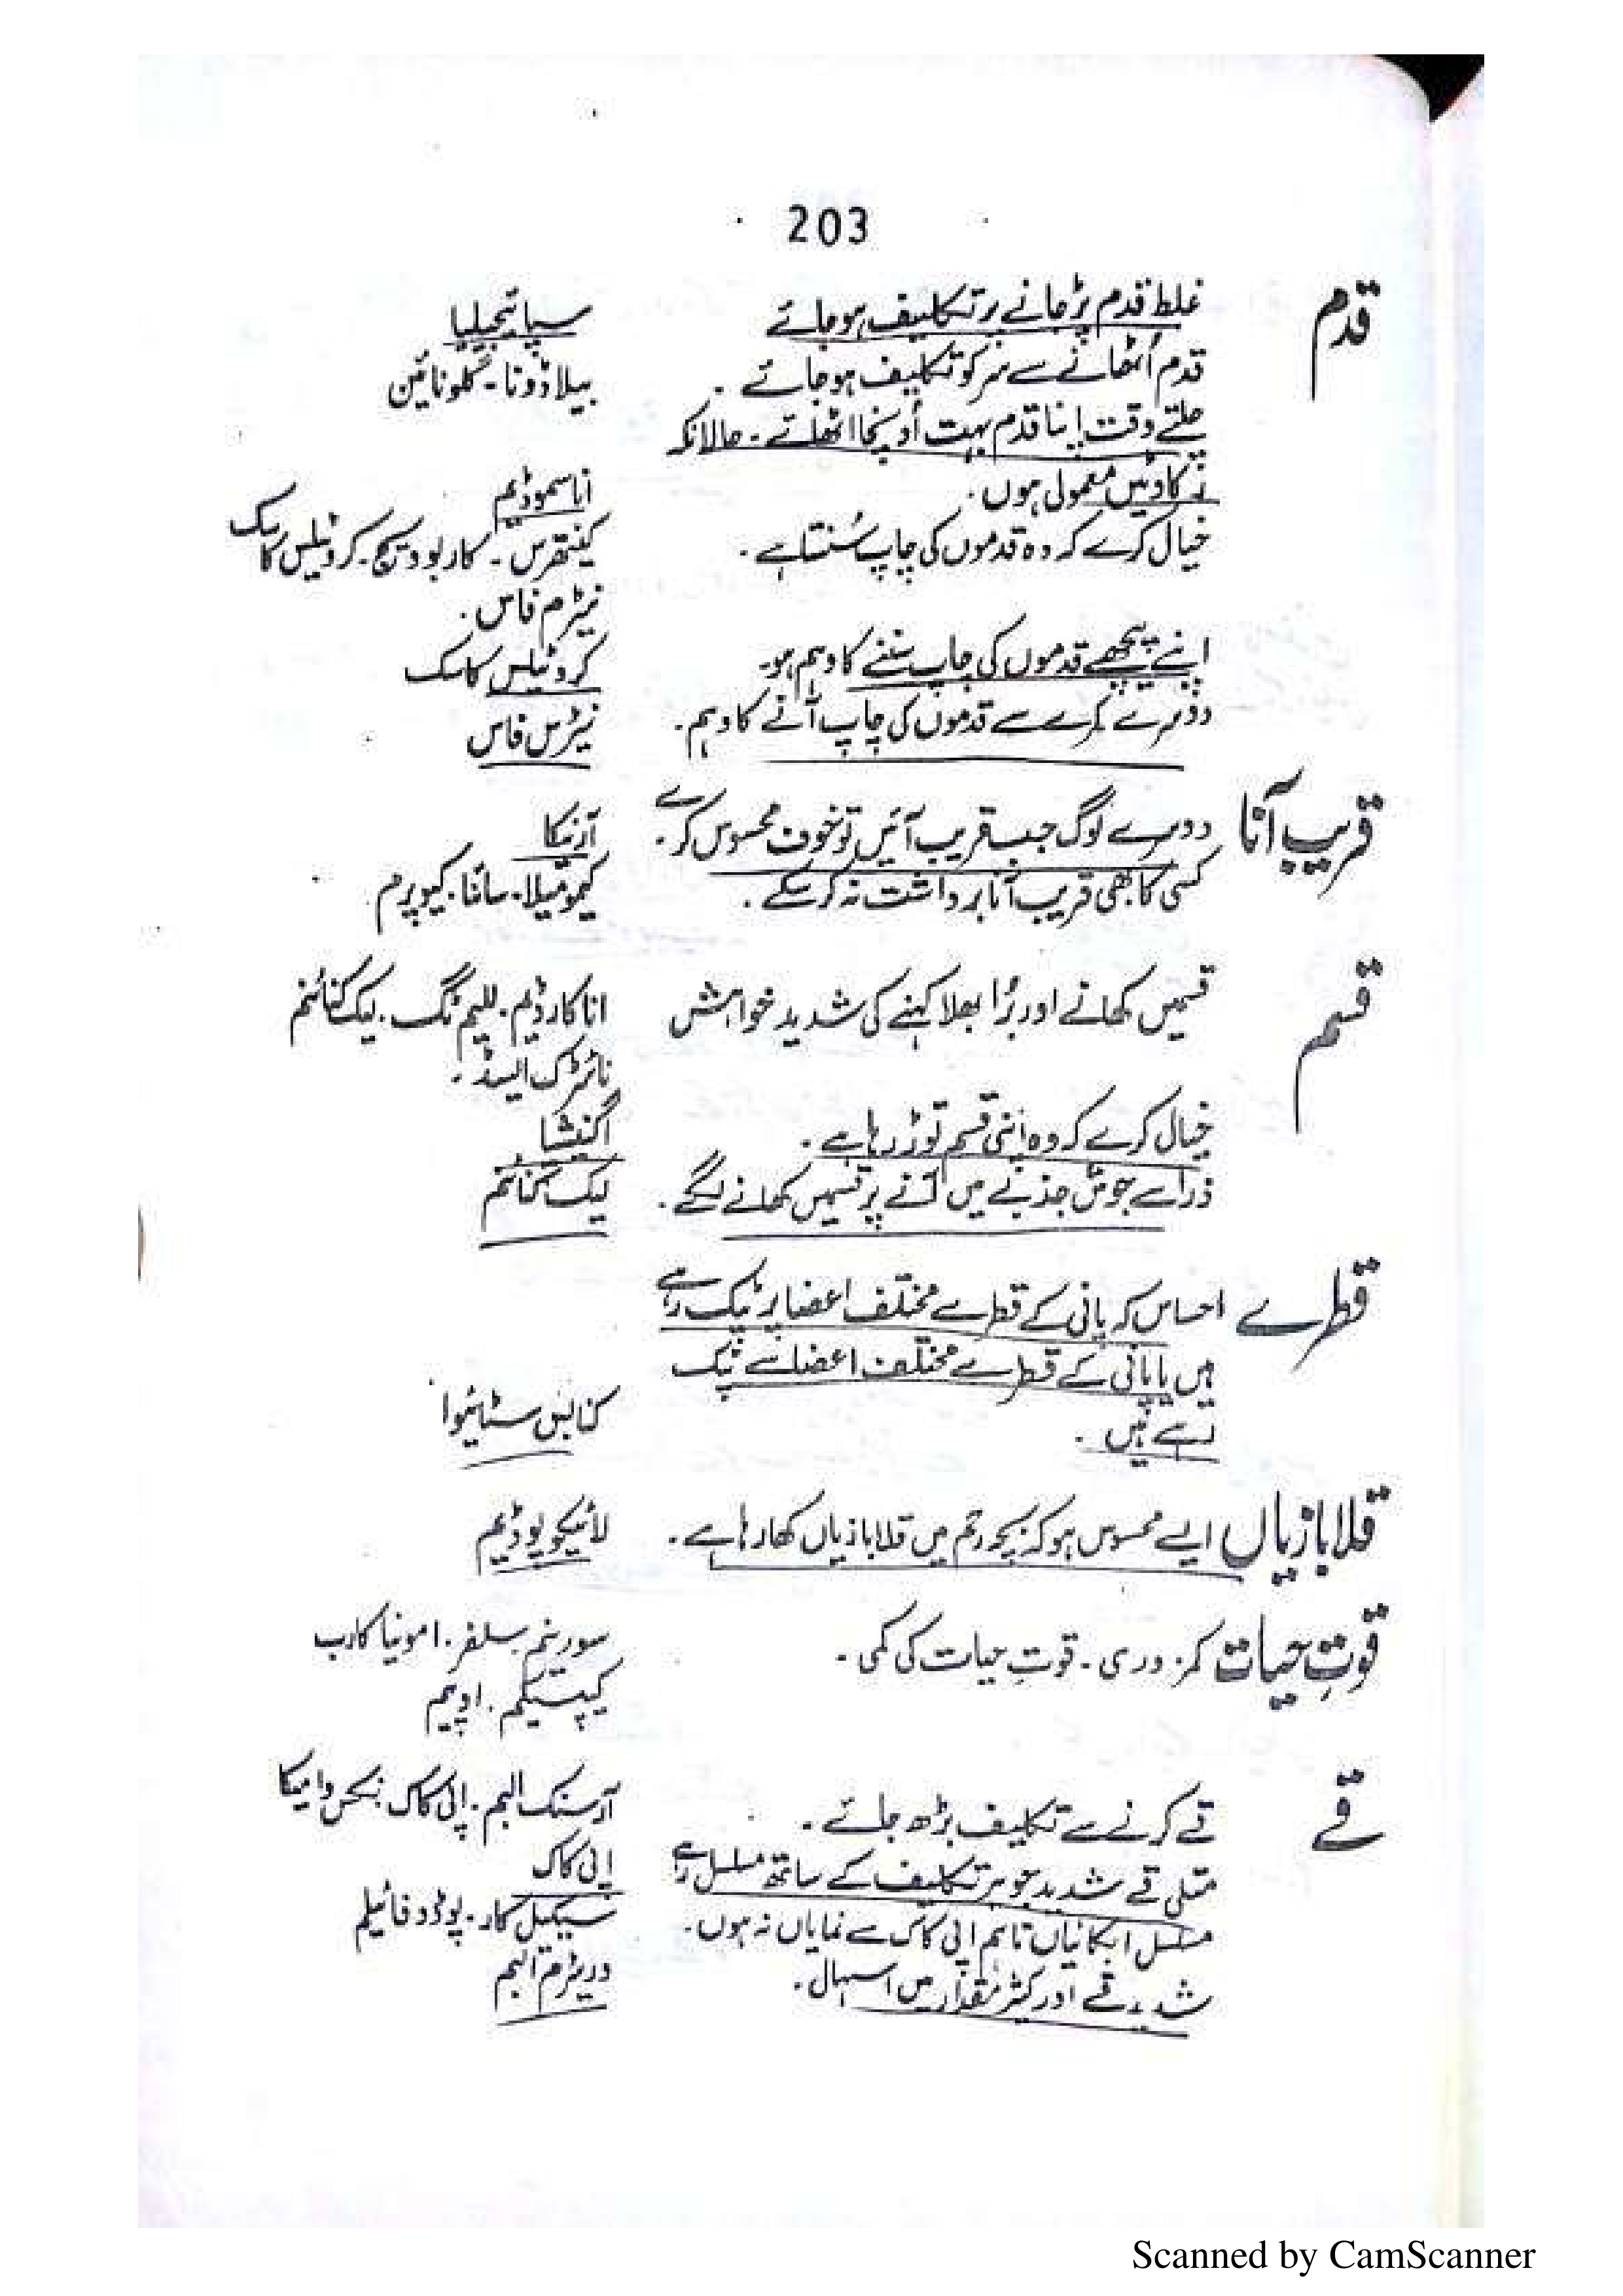 203
قدم غلط قدم پڑ جانے پر تکلیف ہو جائے سپائیجیلیا
قدم اُٹھانے سے سر کو تکلیف ہو جائے۔ بیلاڈونا۔ گلونائین
چلتے وقت اپنا قدم بہت اُونچا اٹھائے۔ حالانکہ
رکاوٹیں معمولی ہوں۔ اناسموڈیم
خیال کرے کہ وہ قدموں کی چاپ سُنتا ہے۔ کینتھرس۔ کاربوویج۔ کروٹیلس کاسک
نیٹرم فاس۔
اپنے پیچھے قدموں کی چاپ سننے کا وہم ہو۔ کروٹیلس کاسک
دوسرے کمرے سے قدموں کی چاپ آنے کا وہم۔ نیٹرس فاس
قریب آنا دوسرے لوگ جب قریب آئیں تو خوف محسوس کرے۔ آرنیکا
کسی کا بھی قریب آنا برداشت نہ کر سکے۔ کیمومیلا۔ سائنا۔ کیوپرم
قسم قسمیں کھانے اور بُرا بھلا کہنے کی شدید خواہش اناکارڈیم۔ للیم ٹگ۔ لیک کنائنم
نائٹرک ایسڈ۔
خیال کرے کہ وہ اپنی قسم توڑ رہا ہے۔ اگنیشیا
ذرا سے جوش جذبے میں آنے پر قسمیں کھانے لگے۔ لیک کنائنم
قطرے احساس کہ پانی کے قطرے مختلف اعضا پر ٹپک رہے
ہیں یا پانی کے قطرے مختلف اعضا سے ٹپک
رہے ہیں۔ کنابس سٹائیوا
قلابازیاں ایسے محسوس ہو کہ بچہ رحم میں قلابازیاں کھا رہا ہے۔ لائیکوپوڈیم
قوتِ حیات کمزوری۔ قوتِ حیات کی کمی۔ سورینم۔ سلفر۔ امونیا کارب
کیپسیکم۔ اوپیم
قے قے کرنے سے تکلیف بڑھ جائے۔ آرسنک البم۔ اپی کاک۔ نکس وامیکا
متلی قے شدید جو ہر تکلیف کے ساتھ مسلسل رہے اپی کاک
مسلسل ابکائیاں تاہم اپی کاک سے نمایاں نہ ہوں۔ سیکیل کار۔ پوڈوفائیلم
شدید قے اور کثیر مقدار میں اسہال۔ وریٹرم البم
Scanned by CamScanner